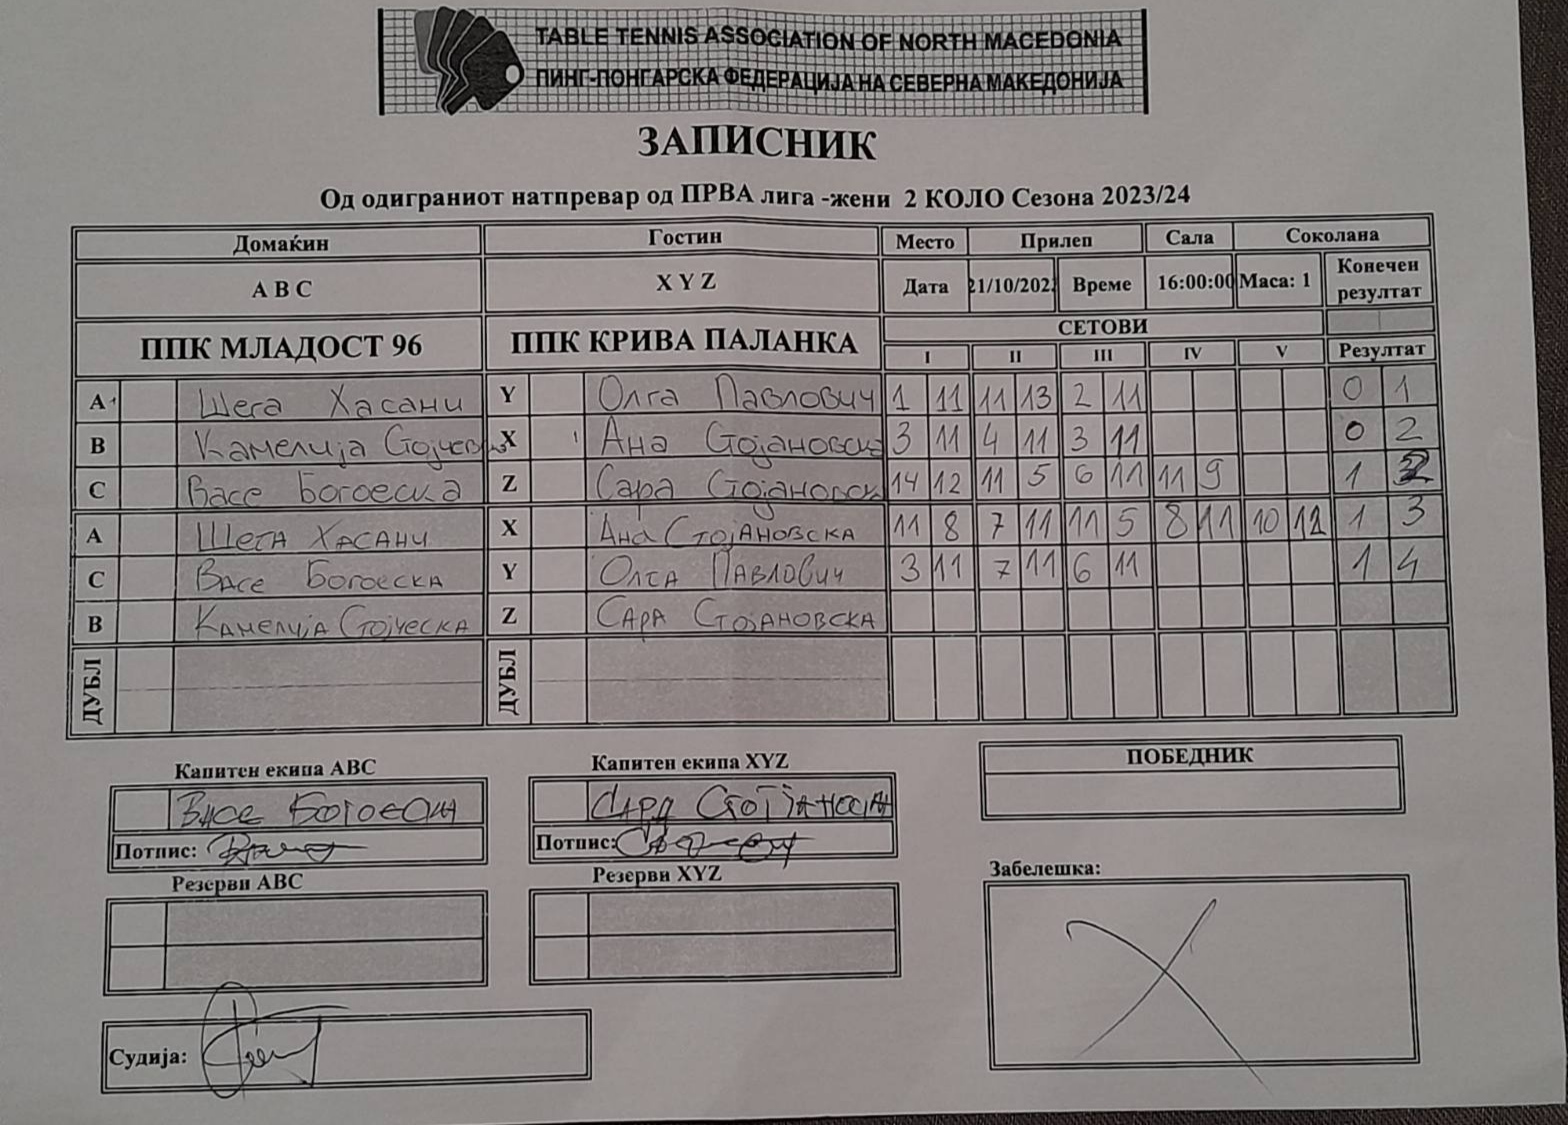 TABLE TENNIS ASSOCIATION OF NORTH MACEDONIA
ПИНГ-ПОНГАРСКА ФЕДЕРАЦИЈА НА СЕВЕРНА МАКЕДОНИЈА
ЗАПИСНИК
Од одиграниот натпревар од ПРВА лига -жени 2 КОЛО Сезона 2023/24
Домаќин Гостин Место Прилеп Сала Соколана
А В С X Y Z Дата 21/10/202 Време 16:00:00 Маса: 1 Конечен резултат
ППК МЛАДОСТ 96 ППК КРИВА ПАЛАНКА СЕТОВИ
I II III IV V Резултат
А Шега Хасани Y Олга Павлович 1 11 11 13 2 11 0 1
В Камелија Стојческа X Ана Стојановска 3 11 4 11 3 11 0 2
С Васе Богоеска Z Сара Стојановск 14 12 11 5 6 11 11 9 1 2
А Шега Хасани X Ана Стојановска 11 8 7 11 11 5 8 11 10 12 1 3
С Васе Богоеска Y Олга Павлович 3 11 7 11 6 11 1 4
В Камелија Стојческа Z Сара Стојановска
ДУБЛ ДУБЛ
Капитен екипа АВС Капитен екипа XYZ ПОБЕДНИК
Васе Сара
Потпис: Потпис:
Резерви АВС Резерви XYZ Забелешка:
Судија: